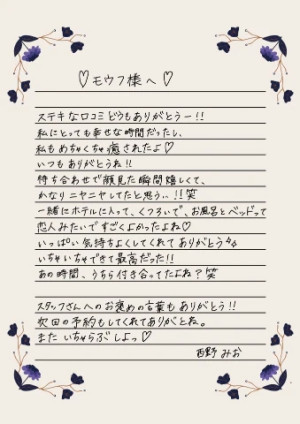 ♡モウフ様へ♡
ステキな口コミどうもありがとうー!!
私にとっても幸せな時間だったし、
私もめちゃくちゃ癒されたよ♡
いつもありがとうね!!
待ち合わせで顔見た瞬間嬉しくて、
かなりニヤニヤしてたと思う..!!笑
一緒にホテルに入って、くつろいで、お風呂とベッドって
恋人みたいですごくよかったよね♡
いっぱい気持ちよくしてくれてありがとう
いちゃいちゃできて最高だった!!
あの時間、うちら付き合ってたよね?笑
スタッフさんへのお褒めの言葉もありがとう!!
次回の予約もしてくれてありがとね。
またいちゃらぶしよっ♡
西野 みお